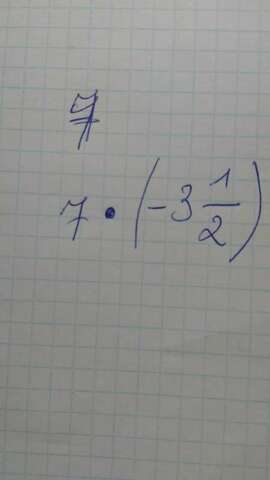 7
7 · (-3 1/2)